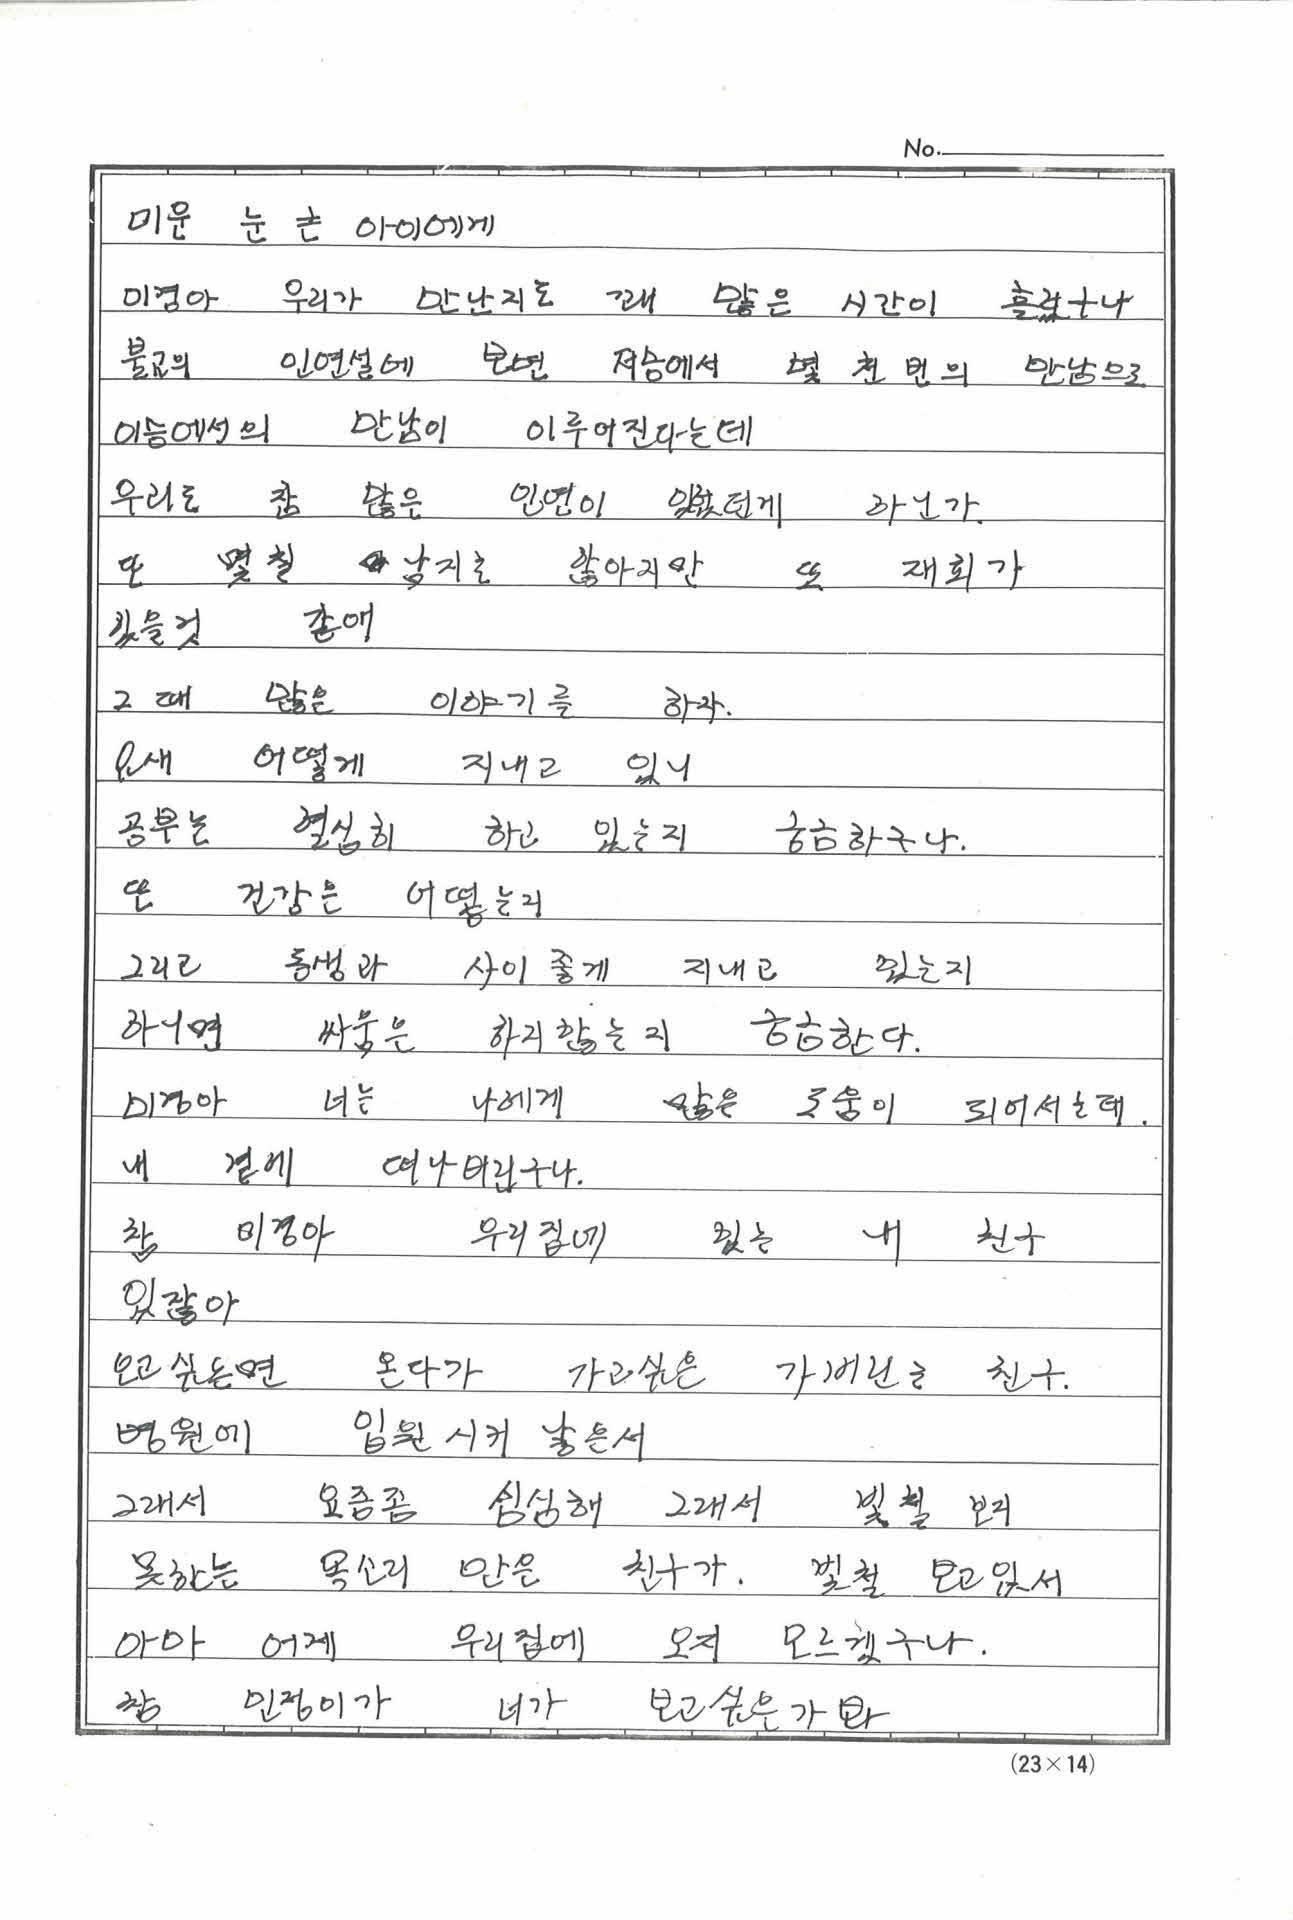 No.
미운 눈 큰 아이에게
미경아 우리가 만난지도 꽤 많은 시간이 흘렀구나
불교의 인연설에 보면 저승에서 몇 천 번의 만남으로
이승에서의 만남이 이루어진다는데
우리도 참 많은 인연이 있었던게 아닌가.
또 몇칠 남지는 않아지만 또 재회가
있을것 같애
그때 많은 이야기를 하자.
요새 어떻게 지내고 있니
공부는 열심히 하고 있는지 궁금하구나.
또 건강은 어떻는지
그리고 동생과 사이좋게 지내고 있는지
아니면 싸움은 하지않는지 궁금한다.
미경아 너는 나에게 많은 도움이 되어서는데.
내 곁에 떠나버린구나.
참 미경아 우리집에 있는 내 친구
있잖아
보고싶은면 온다가 가고싶은 가버린는 친구.
병원에 입원시커 낳은서
그래서 요즘좀 심심해 그래서 몇칠 보지
못하는 목소리 만은 친구가. 몇칠 보고있서
아마 어제 우리집에 오지 모르겠구나.
참 민정이가 너가 보고싶은가 봐
(23×14)